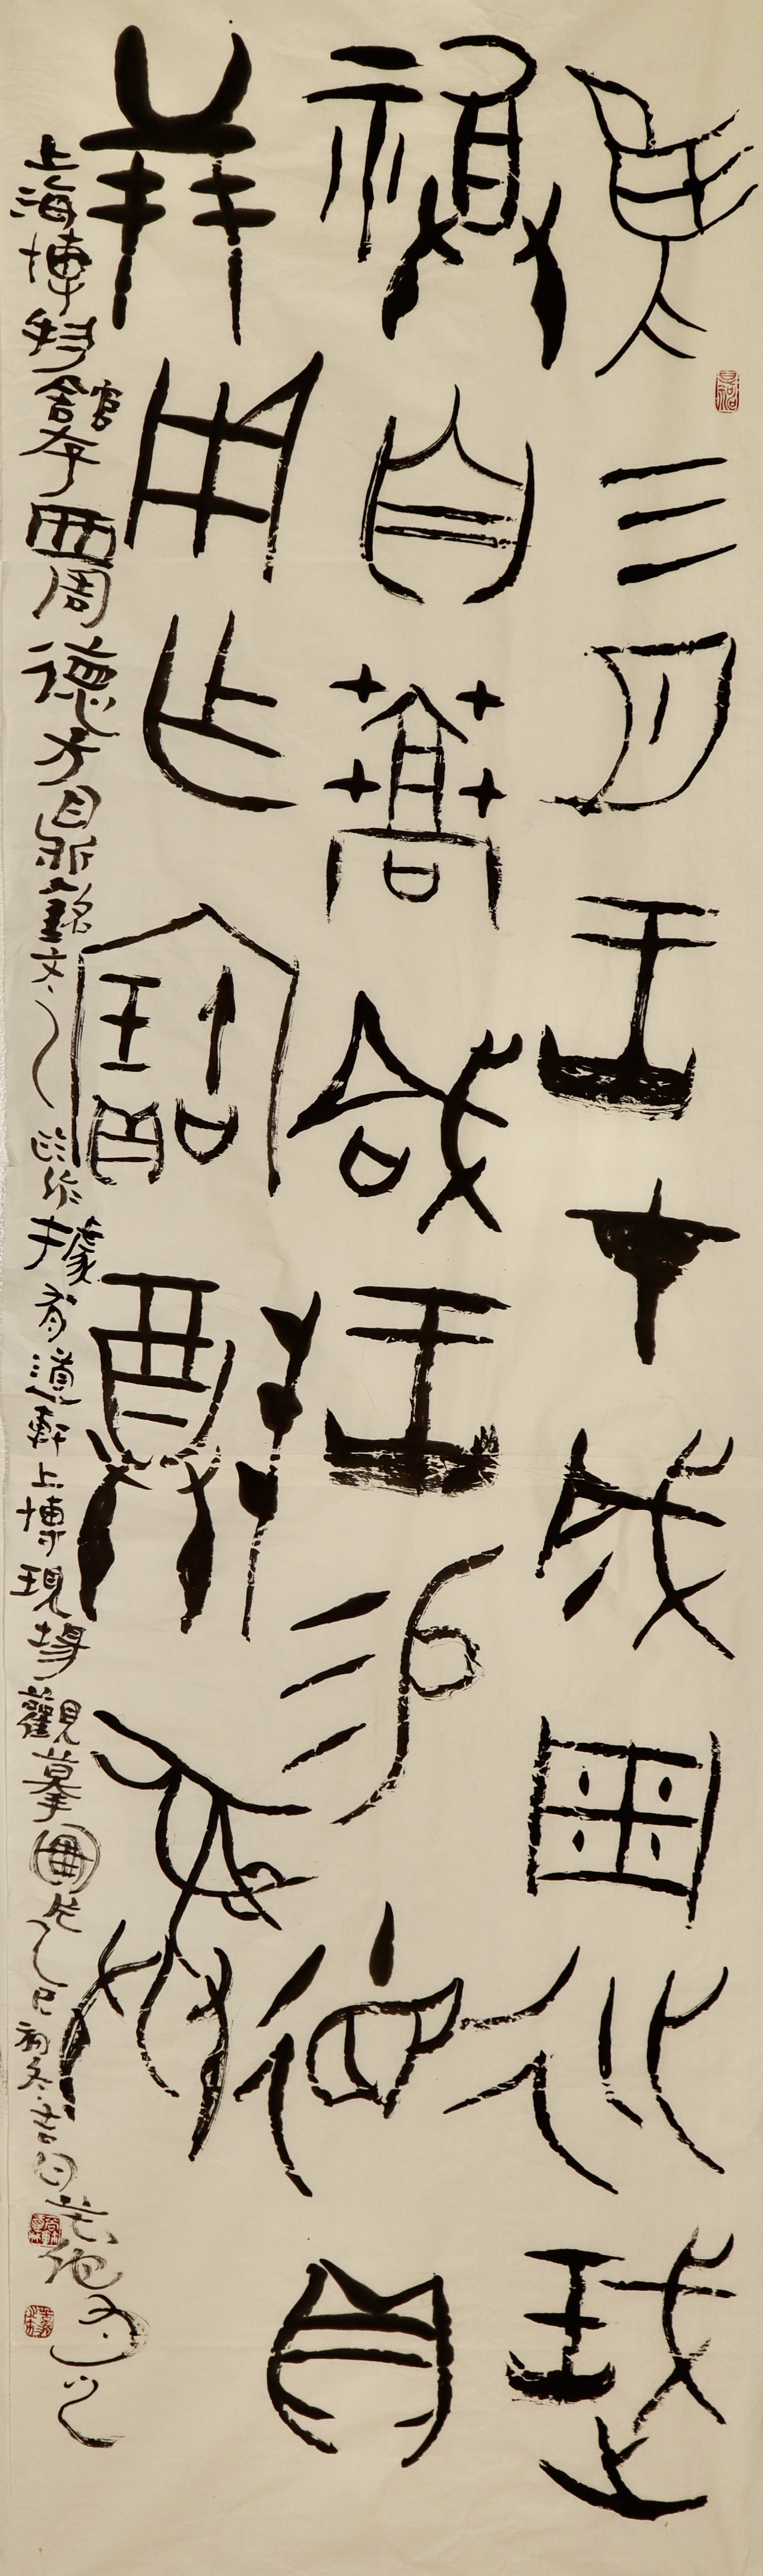 隹三月王才成周征珷
祼自蒿咸王易德貝
廿朋用乍寶尊彝
上海博物館存西周德方鼎銘文 作據有道軒上博現場觀摹圖片乙巳初冬